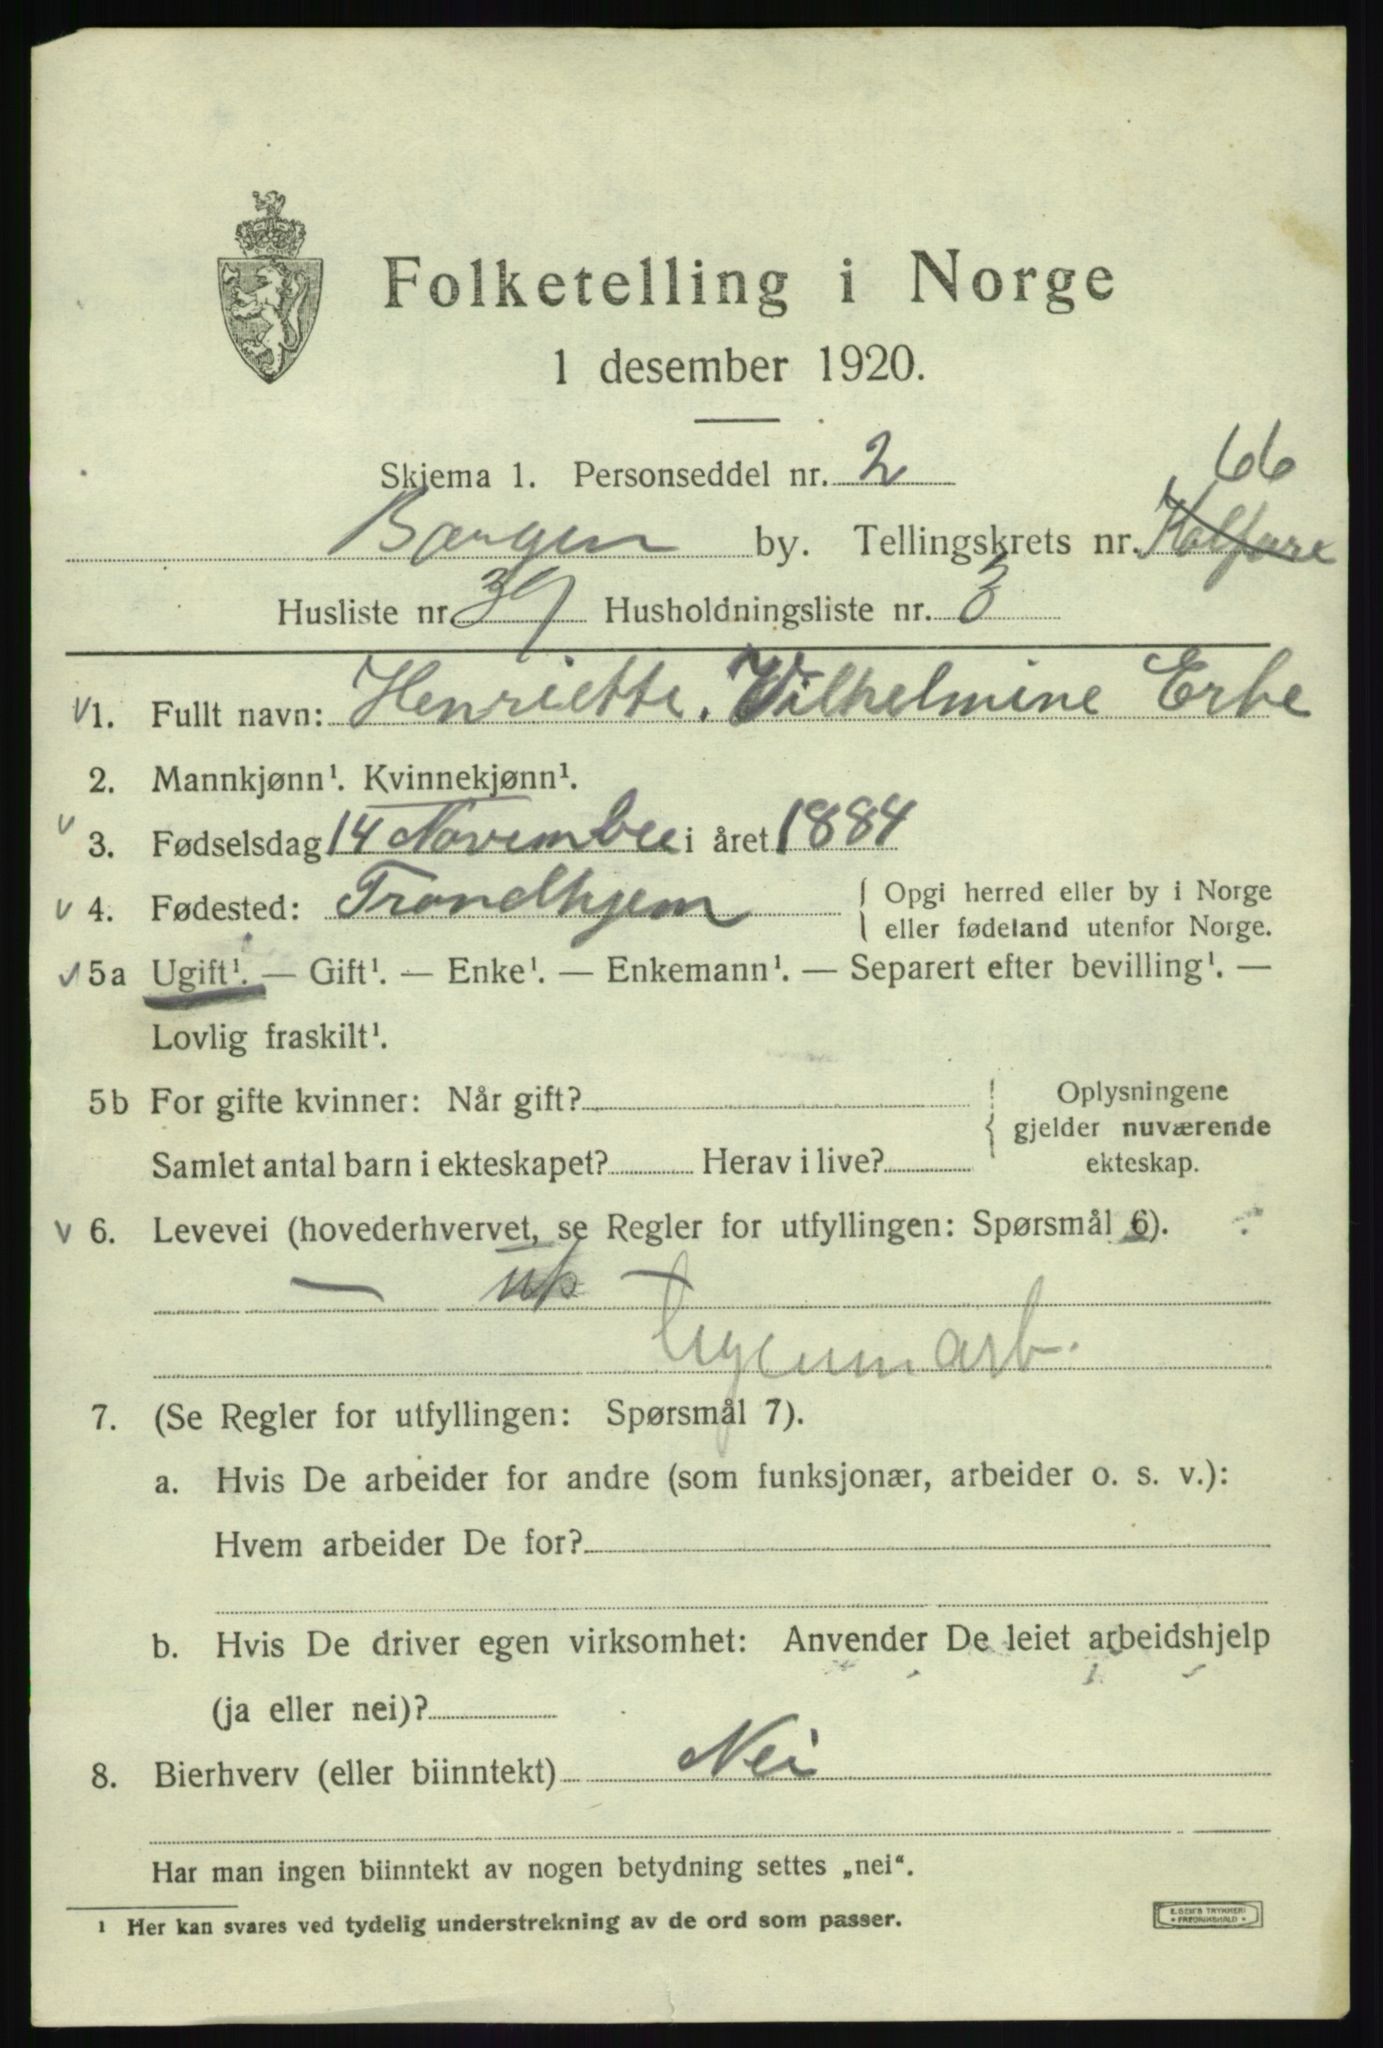 Folketelling i Norge
1 desember 1920.
Skjema 1. Personseddel nr. 2
66
Bergen by. Tellingskrets nr. Kalfare
Husliste nr. 39 Husholdningsliste nr. 3
v 1. Fullt navn: Henriette. Wilhelmine Erbe
2. Mannkjønn¹. Kvinnekjønn¹.
v 3. Fødselsdag 14 November i året 1884
v 4. Fødested: Trondhjem { Opgi herred eller by i Norge
eller fødeland utenfor Norge.
v 5a Ugift¹. — Gift¹. — Enke¹. — Enkemann¹. — Separert efter bevilling¹. —
Lovlig fraskilt¹.
5b For gifte kvinner: Når gift? { Oplysningene
gjelder nuværende
Samlet antal barn i ekteskapet? Herav i live? ekteskap.
v 6. Levevei (hovederhvervet, se Regler for utfyllingen: Spørsmål 6).
— up —
7. (Se Regler for utfyllingen: Spørsmål 7).
a. Hvis De arbeider for andre (som funksjonær, arbeider o. s. v.):
Hvem arbeider De for?
b. Hvis De driver egen virksomhet: Anvender De leiet arbeidshjelp
(ja eller nei)?
8. Bierhverv (eller biinntekt) Nei
Har man ingen biinntekt av nogen betydning settes „nei“.
¹ Her kan svares ved tydelig understrekning av de ord som passer.
E. SEM'S TRYKKERI
FREDRIKSHALD